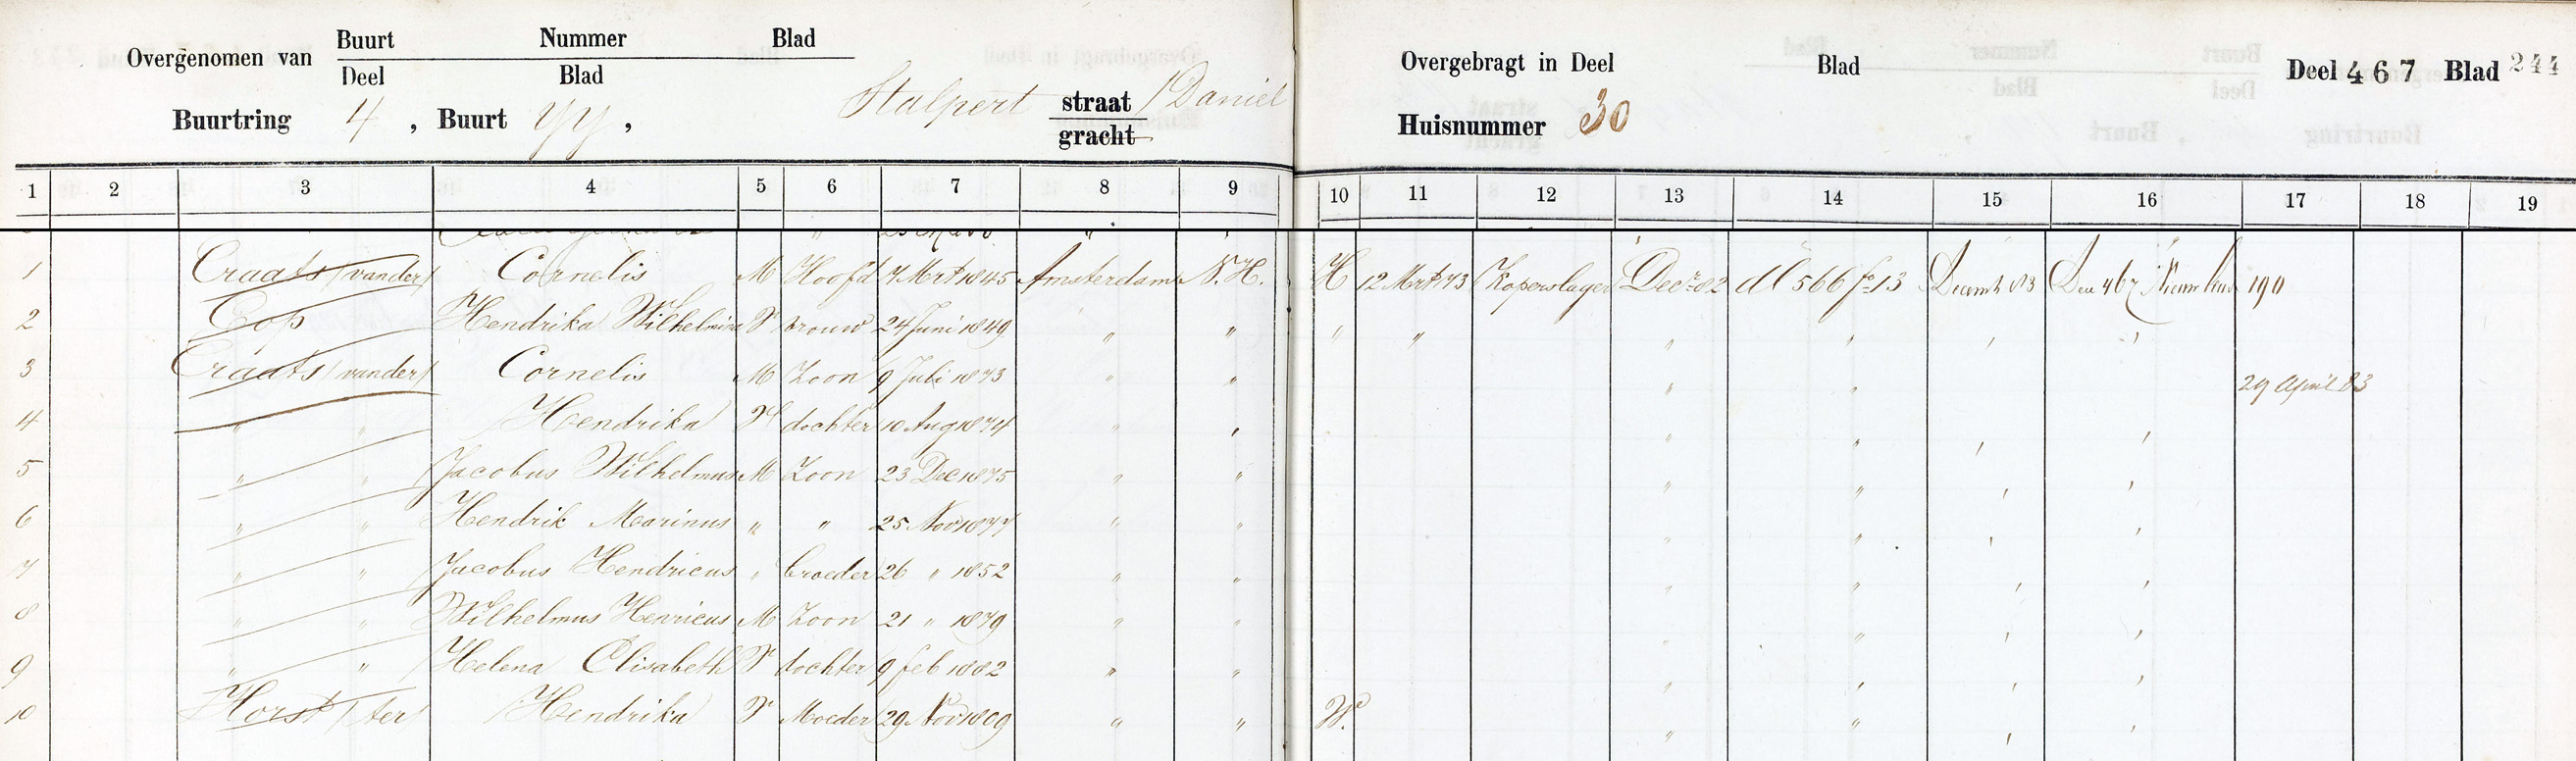 Overgenomen van Buurt Nummer Blad
Deel Blad
Buurtring 4, Buurt YY, Stalpert straat / Daniel
gracht
Overgebragt in Deel Blad Deel 467 Blad 244
Huisnummer 30
1 2 3 4 5 6 7 8 9 10 11 12 13 14 15 16 17 18 19
1 Craats (van der) Cornelis M Hoofd 7 Mrt 1845 Amsterdam N.H. H 12 Mrt 73 Koperslager Decr 82 dl 566 fo 13 Decemb 83 190
2 Cop Hendrika Wilhelmina Vr vrouw 24 Juni 1849 " " " " " " " "
3 Craats (van der) Cornelis M Zoon 9 Juli 1873 " " " " 29 April 83
4 " " Hendrika Vr dochter 10 Aug 1874 " " " " " "
5 " " Jacobus Wilhelmus M Zoon 23 Dec 1875 " " " " " "
6 " " Hendrik Marinus " " 25 Nov 1877 " " " " " "
7 " " Jacobus Hendricus " broeder 26 " 1852 " " " " " "
8 " " Wilhelmus Henricus M Zoon 21 " 1879 " " " " " "
9 " " Helena Elisabeth Vr dochter 9 feb 1882 " " " " " "
10 Horst (ter) Hendrika Vr Moeder 29 Nov 1809 " " We " " " "